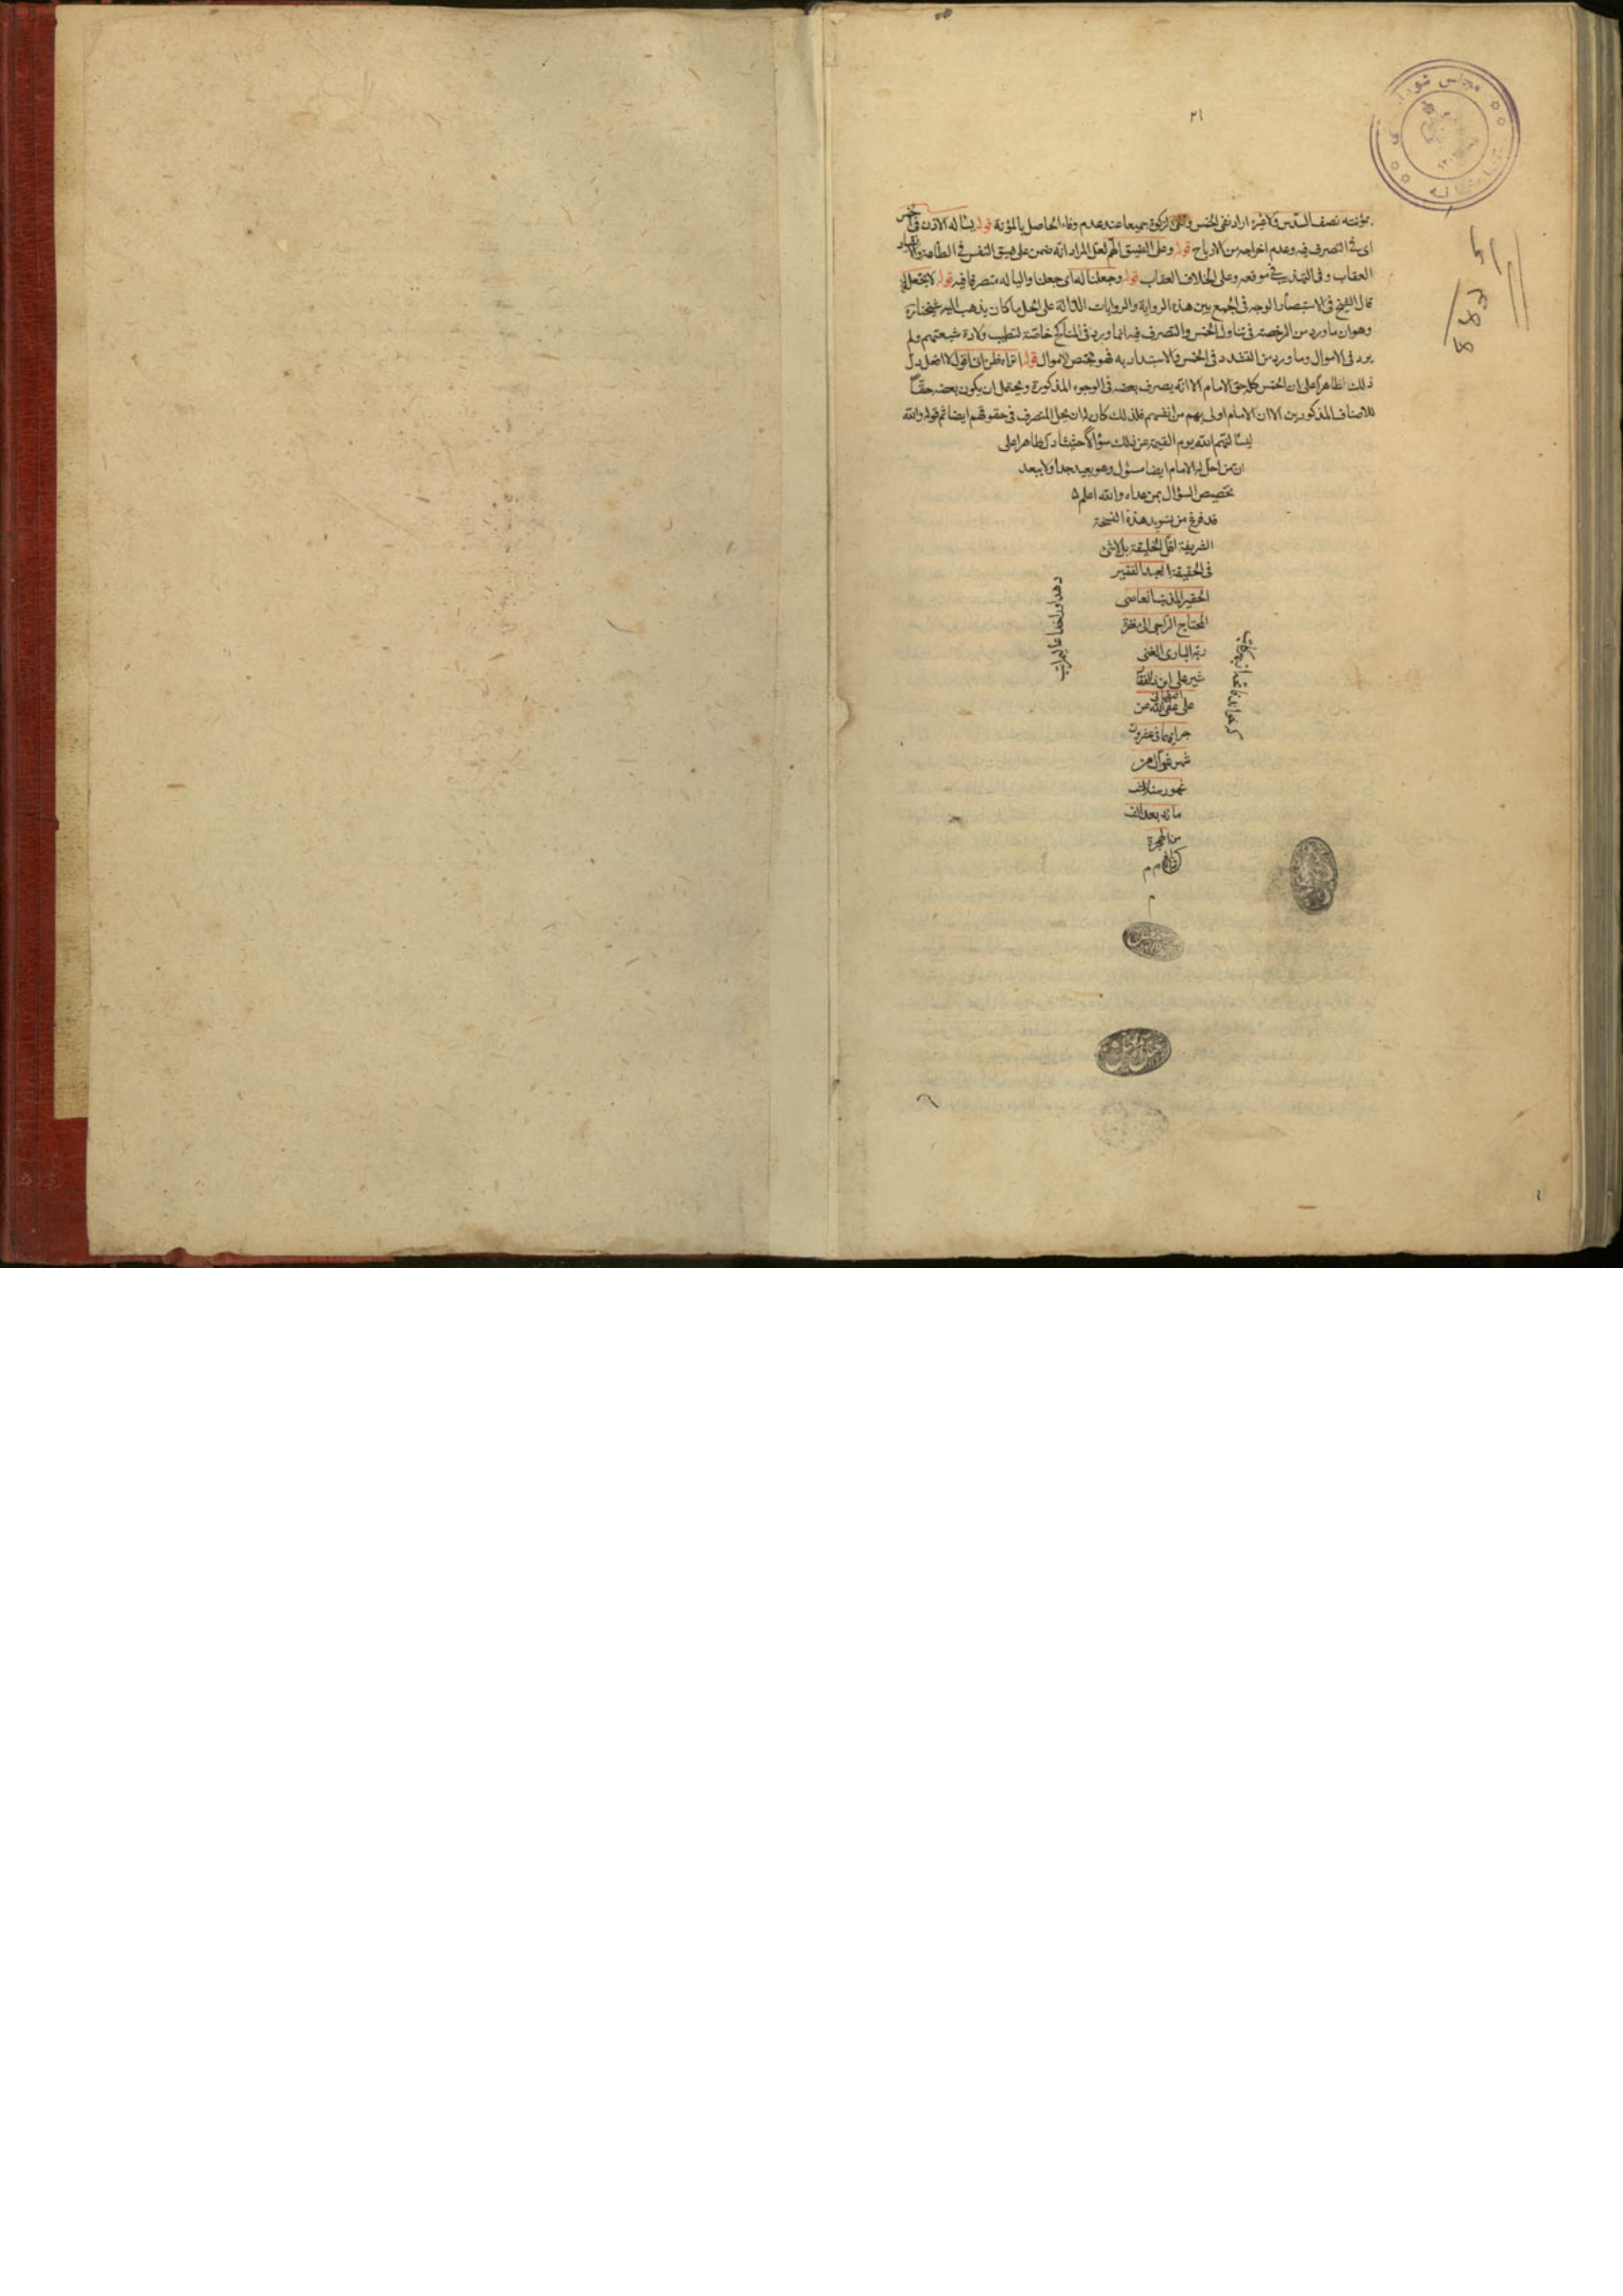 ٢١
بمؤنته نصف السدس ولاخيره اراد نفى الخمس والزكوة جميعا عند عدم وفاء الحاصل بالمؤنة قوله يسأله الاذن فى الخمس
اى فى التصرف فيه وعدم اخراجه من الارباح قوله وعلى الضيق الهم لعل المراد انه ضمن على ضيق النفس فى الطاعة
العقاب وفى التهذيب فى موقعه وعلى الخلاف العقاب قوله وجعلنا له اى جعلنا واليا له متصرفا فيه قوله لا تجعل
قال الشيخ فى الاستبصار الوجه فى الجمع بين هذه الرواية والروايات الدالة على الحل ما كان يذهب اليه شيخنا ره
وهو ان ما ورد من الرخصة فى تناول الخمس والتصرف فيه انما ورد فى المناكح خاصة لتطيب ولادة شيعتهم ولم
يرد فى الاموال وما ورد من التشدد فى الخمس والاستبداد به فهو يختص الاموال قوله اتراه ظن انى اقول لا افعل دل
ذلك ظاهرا على ان الخمس كله حق الامام الا انه يصرف بعضه فى الوجوه المذكورة ويحتمل ان يكون بعضه حقا
للاصناف المذكورين الا ان الامام اولى بهم من انفسهم فلذلك كان له ان يحل التصرف فى حقوقهم ايضا ثم قوله والله
ليسألنهم الله يوم القيمة عن ذلك سؤالا حثيثا دل ظاهرا على
ان من احل له الامام ايضا مسئول وهو بعيد جدا ولا يبعد
تخصيص السؤال بمن عداه والله اعلم
قد فرغ من تسويد هذه النسخة
الشريفة اقل الخليقة بل لاشئ
فى الحقيقة العبد الفقير
الحقير المذنب العاصى
المحتاج الراجى الى مغفرة
ربه البارى الغنى
شير على ابن
على عفى الله عن
جرايمهما فى
شهر شوال من
شهور سنة
مائة بعد الف
من الهجرة